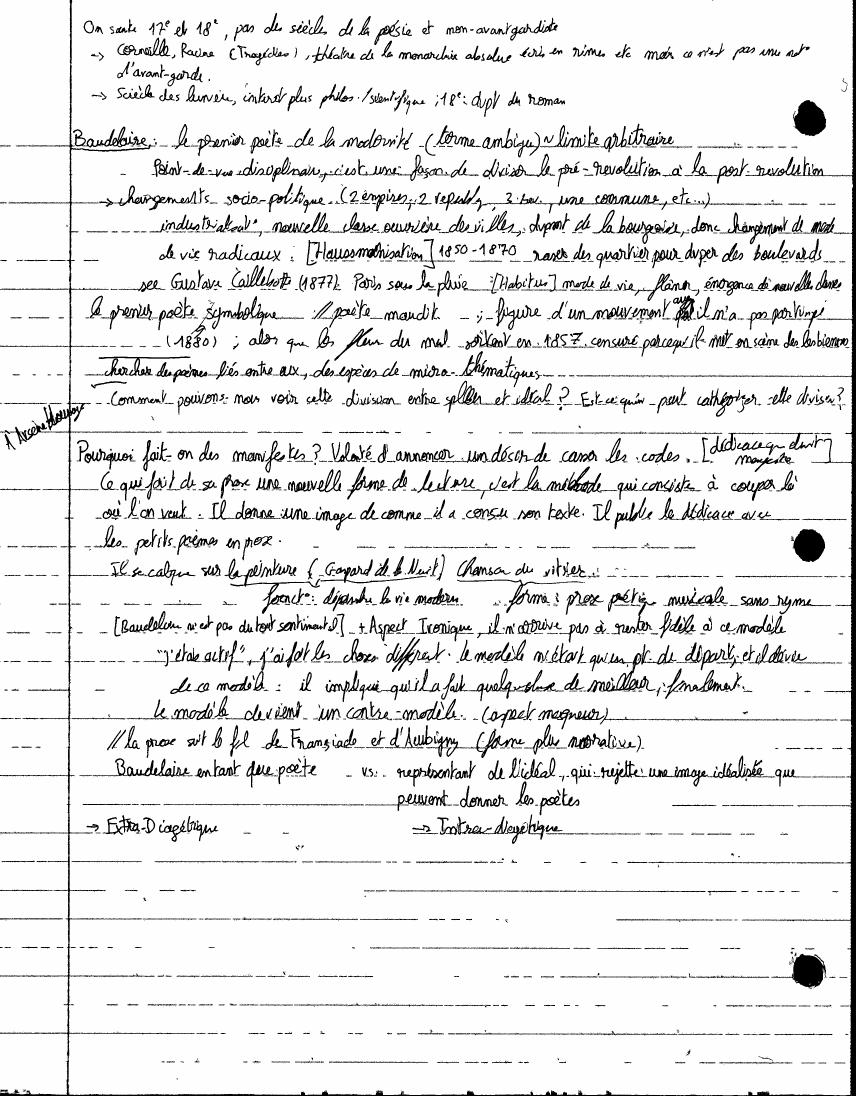 On saute 17e et 18e, pas des siècles de la poésie et non-avantgardiste
→ Corneille, Racine (Tragédies), théâtre de la monarchie absolue écris en rimes etc mais ce n'est pas une not°
d'avant-garde.
→ Siècle des lumière, intérêt plus philos./scientifique ; 18e : dvpt du roman
Baudelaire : le premier poète de la modernité (terme ambigu) ~ limite arbitraire
Point-de-vue disciplinaire, c'est une façon de diviser le pré-revolution à la post revolution
→ changements socio-politique (2 empires, 2 republq, une commune, etc...)
industrialisat°, nouvelle classe ouvrière des villes, dvpmt de la bourgeoisie, donc changement de mode
de vie radicaux : [Haussmanisation] 1850-1870 raser des quartier pour dvper des boulevards
see Gustave Caillebotte (1877) Paris sous la pluie [Habitus] mode de vie, flâner, émergence de nouvelles classes
le premier poète symbolique // poète maudit ; figure d'un mouvement auq il n'a pas participé
(1880) ; alors que les fleur du mal sortent en 1857 censuré parcequ'il met en scène des lesbiennes
chercher des poèmes liés entre eux, des espèces de micro-thématiques
Comment pouvons-nous voir cette division entre spleen et idéal ? Est-ce qu'on peut catégoriser-elle diviser?
À Arsène Houssaye
Pourquoi fait-on des manifestes ? Volonté d'annoncer un désir de casser les codes. [dédicace qui devient
manifeste]
Ce qui fait de sa prose une nouvelle forme de lecture, c'est la méthode qui consiste à couper là
où l'on veut. Il donne une image de comme il a conçu son texte. Il publie la dédicace avec
les petits poèmes en prose.
Il se calque sur la peinture (Gaspard de la Nuit) Chanson du vitrier :
fonct° : dépeindre la vie moderne forme : prose poétiq musicale sans ryme
[Baudelaire n'est pas du tout sentimental] + Aspect Ironique, il n'arrive pas à rester fidèle à ce modèle
"j'étais actif", j'ai fait les choses différent. le modèle n'était qu'un pt. de départ, et il dévie
de ce modèle : il implique qu'il a fait quelque chose de meilleur, finalement.
Le modèle devient un contre-modèle. (aspect moqueur)
// la prose suit le fil de Franciade et d'Aubigny (forme plus narrative)
Baudelaire en tant que poète vs. représentant de l'idéal, qui rejette une image idéaliste que
peuvent donner les poètes
→ Extra-Diagétique → Intra-diegétique